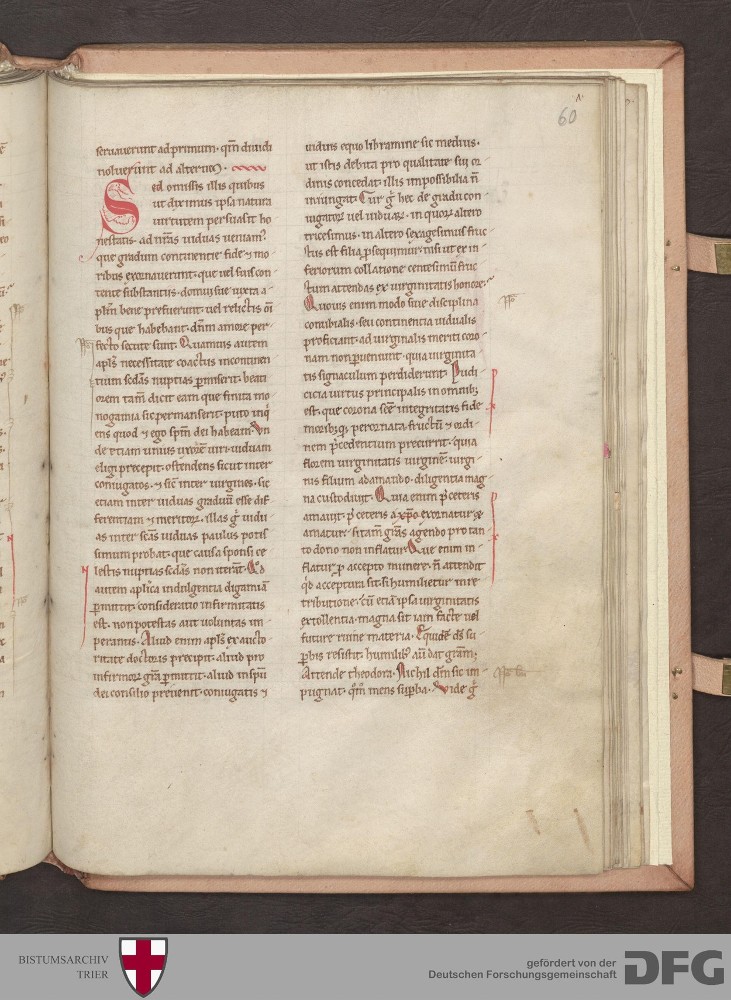 60
seruauerunt ad primum. qm̄ diuidi
noluerunt ad alterum.
Sed omissis illis quibus
ut diximus ipsa natura
uirtutem persuasit ho
nestatis. ad nr̄as uiduas ueniam9.
que gradum continentie fide ⁊ mo
ribus exornauerunt. que uel suis con
tente substantiis. domui sue iuxta a
plm̄ bene prefuerunt. uel relictis oī
bus que habebant. dn̄m amore per
fecto secute sunt. Quamuis autem
apl̄s necessitate coactus incontinen
tium sc̄das nuptias ꝑmiserit. beati
orem tam̄ dicit eam que finita mo
nogamia sic permanserit. puto inq̇
ens quod ⁊ ego sp̄m dei habeam. Vn
de etiam unius uxorē uiri. uiduam
eligi precepit. ostendens sicut inter
coniugatos. ⁊ sic̄ inter uirgines. sic
etiam inter uiduas graduū esse dif
ferentiam ⁊ meritoꝝ. illas g̊ uidu
as inter sc̄as uiduas paulus potis
simum probat. que causa sponsi ce
lestis nuptias sc̄das non iterāt. Qd̓
autem aplica indulgentia digamiā
ꝑmittit. consideratio infirmitatis
est. non potestas aut uoluntas im
perantis. Aliud enim apl̄s ex aucto
ritate doctoris precipit. aliud pro
infirmoꝝ gr̄a ꝑmittit. aliud in sp̄u
dei consilio preuenit. coniugatis ⁊
uiduis equo libramine sic medius.
ut istis debita pro qualitate sui or
dinis concedat. illis impossibilia n̄
iniungat. Cur g̊ hec de gradu con
iugatoꝝ uel uiduaꝝ. in quoꝝ altero
tricesimus. in altero sexagesimus fruc
tus est filia ꝓsequimur. nisi ut ex in
feriorum collatione centesimū fruc
tum attendas ex uirginitatis honore.
Quouis enim modo siue disciplina
conubialis. seu continentia uidualis
proficiant. ad uirginalis meriti coro
nam non ꝑueniunt. quia uirginita
tis signaculum perdiderunt. Pudi
cicia uirtus principalis in omnibꝫ
est. que corona sc̄e integritatis fide
moribꝫqꝫ perornata. fructū ⁊ ordi
nem p̄cedentium precurrit. quia
florem uirginitatis uirginē. uirgi
nis filium adamando. diligentia mag
na custodiuit. Quia enim p̄ ceteris
amauit. p̄ ceteris a xp̄o exornatur ⁊
amatur. si tam̄ gr̄as agendo pro tan
to dono non inflatur. Que enim in
flatur ꝓ accepto munere. n̄ attendit
qd̓ acceptura sit. si humilietur in re
tributione. cū etiā ipsa uirginitatis
extollentia. magna sit iam facte uel
future ruine materia. Equidē ds̄ su
ꝑbis resistit. humilibꝫ aū dat gr̄am.
Attende theodora. Nichil dm̄ sic im
pugnat. qm̊ mens suꝑba. Vide g̊
BISTUMSARCHIV
TRIER
gefördert von der
Deutschen Forschungsgemeinschaft
DFG